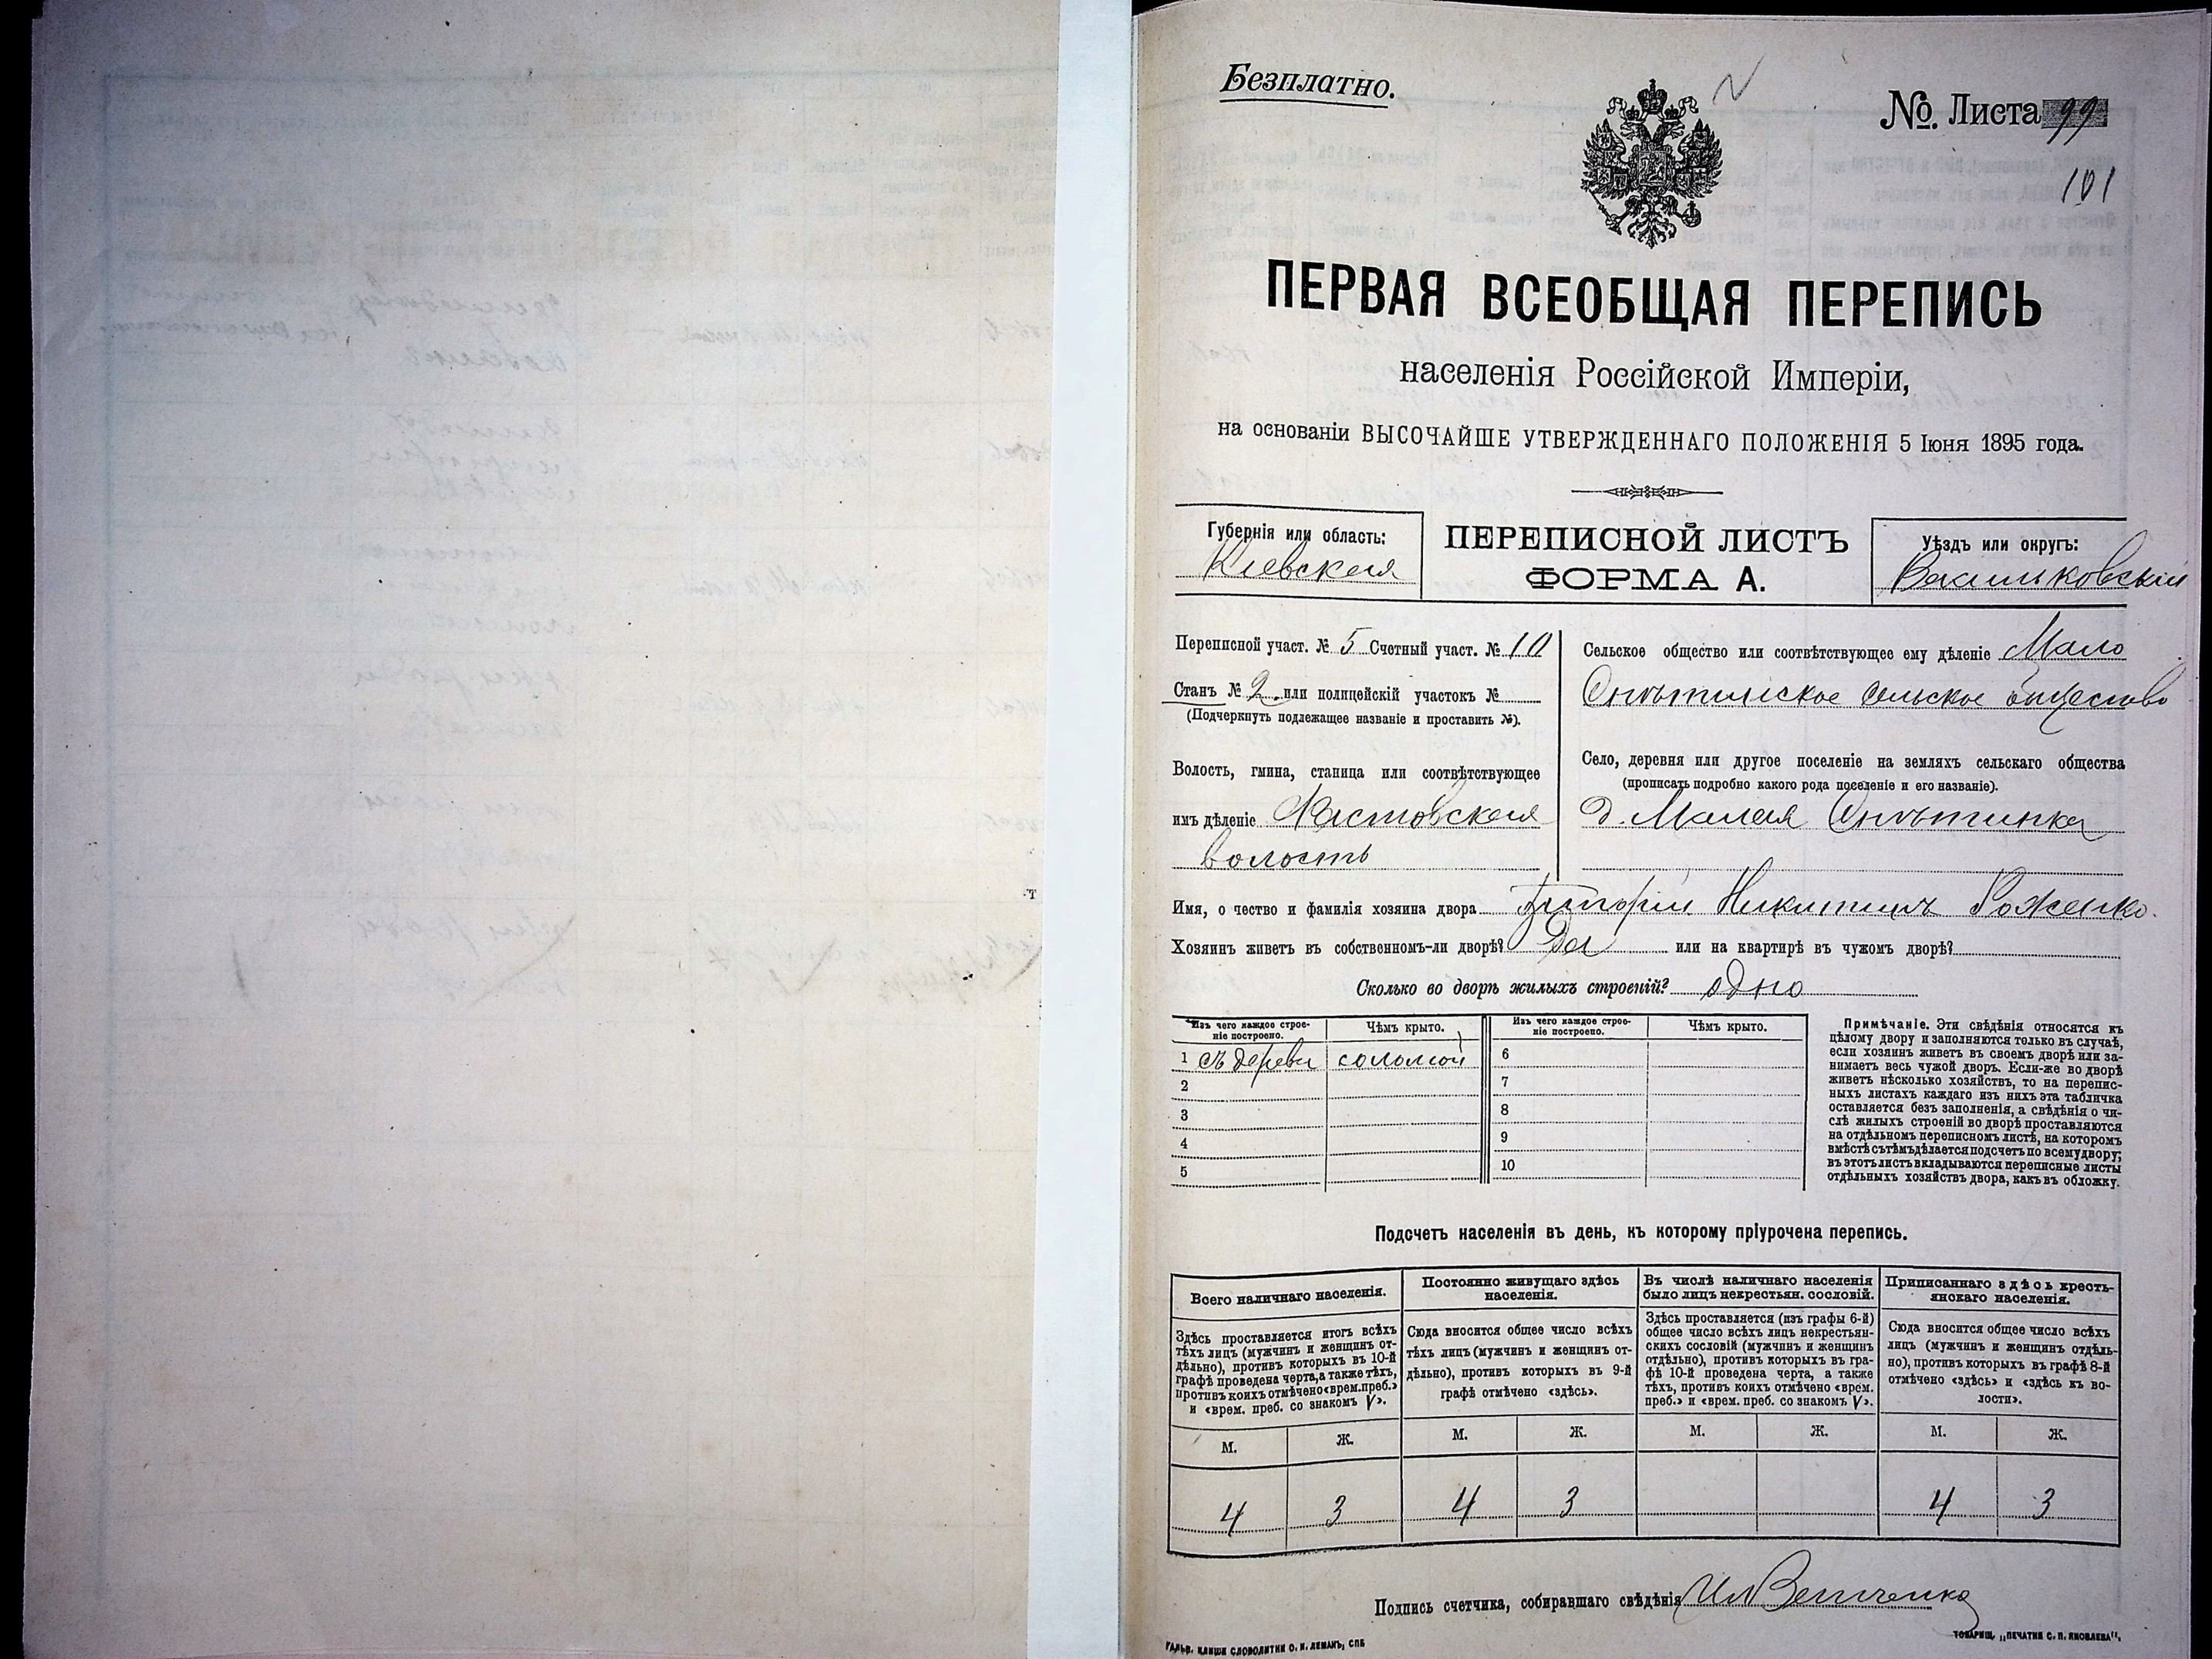 Безплатно.
№ Листа 99
101
ПЕРВАЯ ВСЕОБЩАЯ ПЕРЕПИСЬ
населенія Россійской Имперіи,
на основаніи ВЫСОЧАЙШЕ УТВЕРЖДЕННАГО ПОЛОЖЕНІЯ 5 Іюня 1895 года.
Губернія или область:
Кіевская
ПЕРЕПИСНОЙ ЛИСТЪ
ФОРМА А.
Уѣздъ или округъ:
Васильковскій
Переписной участ. № 5 Счетный участ. № 10
Станъ № 2. или полицейскій участокъ №
(Подчеркнуть подлежащее названіе и проставить №).
Волость, гмина, станица или соотвѣтствующее
имъ дѣленіе Фастовская
волость
Сельское общество или соотвѣтствующее ему дѣленіе Мало
Снѣтинское сельское общество
Село, деревня или другое поселеніе на земляхъ сельскаго общества
(прописать подробно какого рода поселеніе и его названіе).
д. Малая Снѣтинка
Имя, о чество и фамилія хозяина двора Григорій Никитинъ Роженко.
Хозяинъ живетъ въ собственномъ-ли дворѣ? Да или на квартирѣ въ чужомъ дворѣ?
Сколько во дворѣ жилыхъ строеній? одно
Изъ чего каждое строе-
ніе построено.
Чѣмъ крыто.
Изъ чего каждое строе-
ніе построено.
Чѣмъ крыто.
1 съ дерева соломой 6
2 7
3 8
4 9
5 10
Примѣчаніе. Эти свѣдѣнія относятся къ
цѣлому двору и заполняются только въ случаѣ,
если хозяинъ живетъ въ своемъ дворѣ или за-
нимаетъ весь чужой дворъ. Если-же во дворѣ
живетъ нѣсколько хозяйствъ, то на перепис-
ныхъ листахъ каждаго изъ нихъ эта табличка
оставляется безъ заполненія, а свѣдѣнія о чи-
слѣ жилыхъ строеній во дворѣ проставляются
на отдѣльномъ переписномъ листѣ, на которомъ
вмѣстѣ съ тѣмъ дѣлается подсчетъ по всему двору;
въ этотъ листъ вкладываются переписные листы
отдѣльныхъ хозяйствъ двора, какъ въ обложку.
Подсчетъ населенія въ день, къ которому пріурочена перепись.
Всего наличнаго населенія.
Здѣсь проставляется итогъ всѣхъ
тѣхъ лицъ (мужчинъ и женщинъ от-
дѣльно), противъ которыхъ въ 10-й
графѣ проведена черта, а также тѣхъ,
противъ коихъ отмѣчено «врем. преб.»
и «врем. преб. со знакомъ V».
Постоянно живущаго здѣсь
населенія.
Сюда вносится общее число всѣхъ
тѣхъ лицъ (мужчинъ и женщинъ от-
дѣльно), противъ которыхъ въ 9-й
графѣ отмѣчено «здѣсь».
Въ числѣ наличнаго населенія
было лицъ некрестьян. сословій.
Здѣсь проставляется (изъ графы 6-й)
общее число всѣхъ лицъ некрестьян-
скихъ сословій (мужчинъ и женщинъ
отдѣльно), противъ которыхъ въ гра-
фѣ 10-й проведена черта, а также
тѣхъ, противъ коихъ отмѣчено «врем.
преб.» и «врем. преб. со знакомъ V».
Приписаннаго здѣсь кресть-
янскаго населенія.
Сюда вносится общее число всѣхъ
лицъ (мужчинъ и женщинъ отдѣль-
но), противъ которыхъ въ графѣ 8-й
отмѣчено «здѣсь» и «здѣсь къ во-
лости».
М. Ж. М. Ж. М. Ж. М. Ж.
4 3 4 3 4 3
Подпись счетчика, собиравшаго свѣдѣнія
ГАЛЬВ. КЛИШИ СЛОВОЛИТНИ О. И. ЛЕМАНЪ, СПБ
ТОВАРИЩ. „ПЕЧАТНЯ С. П. ЯКОВЛЕВА“.